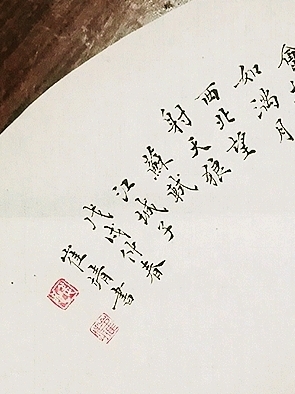 會
如滿月
西北望
射天狼
蘇軾
江城子
戊戌仲春
崔靖書